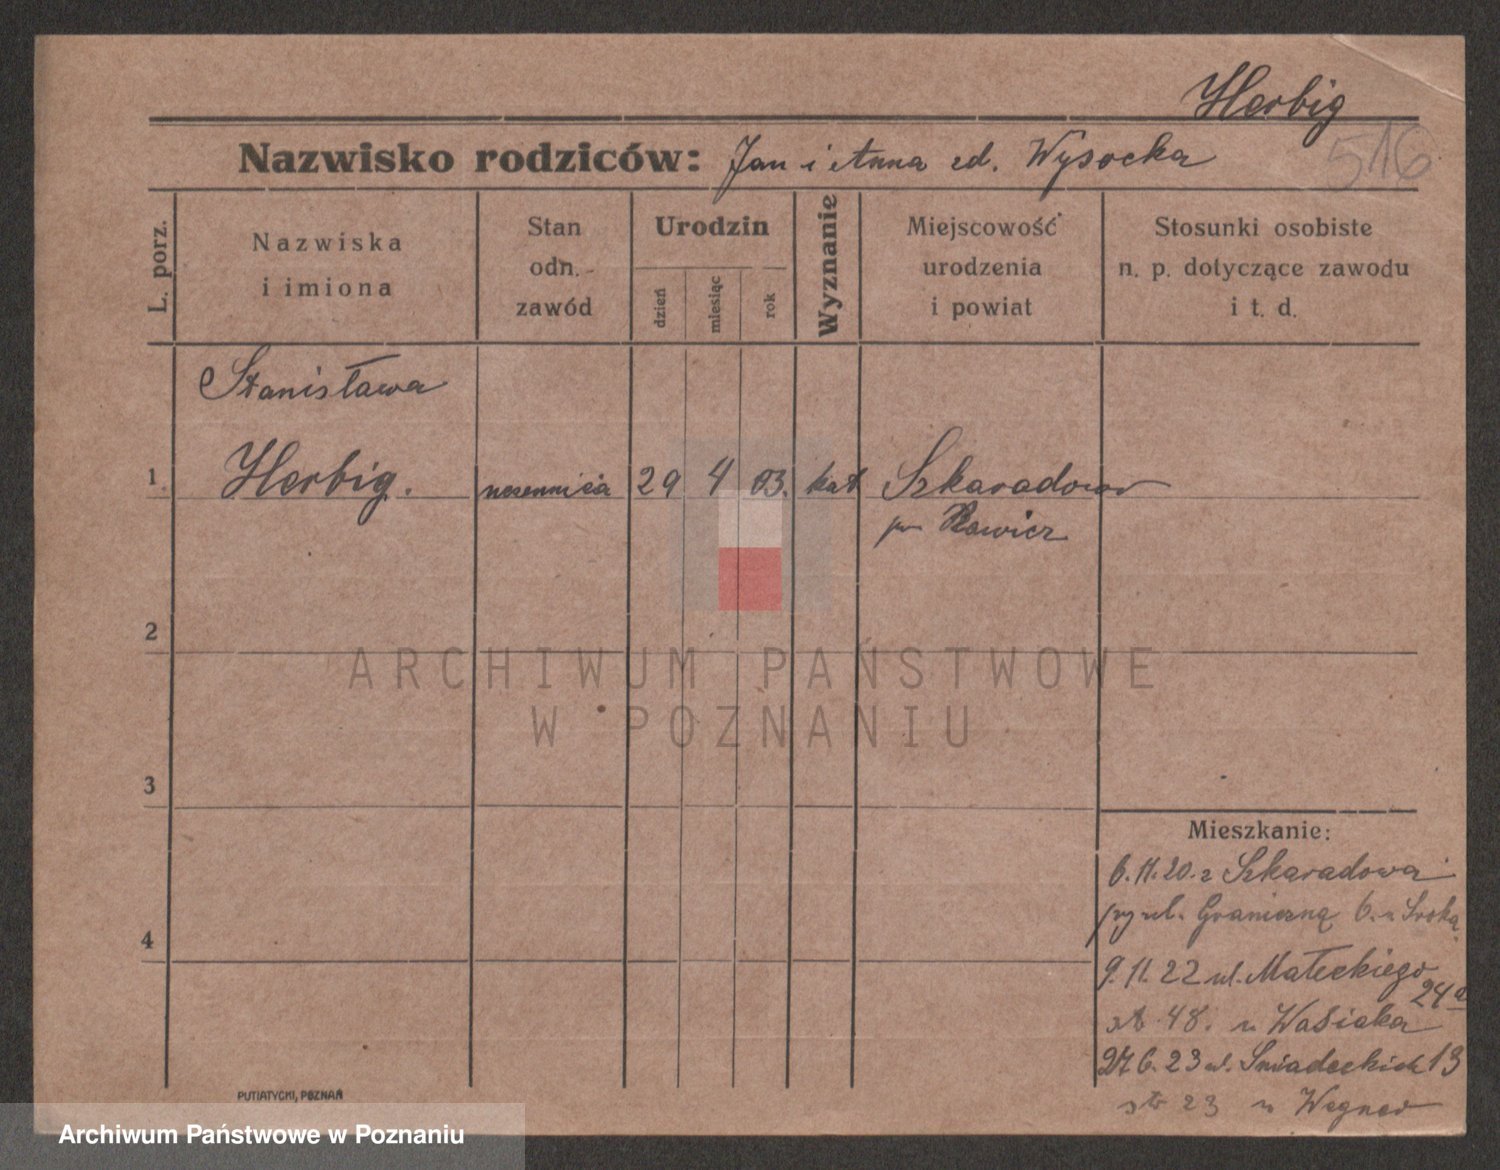 Herbig
516
Nazwisko rodziców: Jan i Anna zd. Wysocka
L. porz.
Nazwiska
i imiona
Stan
odn.
zawód
Urodzin
dzień
miesiąc
rok
Wyznanie
Miejscowość
urodzenia
i powiat
Stosunki osobiste
n. p. dotyczące zawodu
i t. d.
Stanisława
1 Herbig. uczennica 29 4 03. kat Szkaradowo
pw Rawicz
2
3
4
ARCHIWUM PAŃSTWOWE
W POZNANIU
Mieszkanie:
6.11.20. z Szkaradowa
przy ul. Graniczną 6. u Sroka
9.11.22 ul. Małeckiego 24a
48. u Wasiaka
27.6.23 ul. Śniadeckich 13
str 23 u Wegner
PUTIATYCKI, POZNAŃ
Archiwum Państwowe w Poznaniu